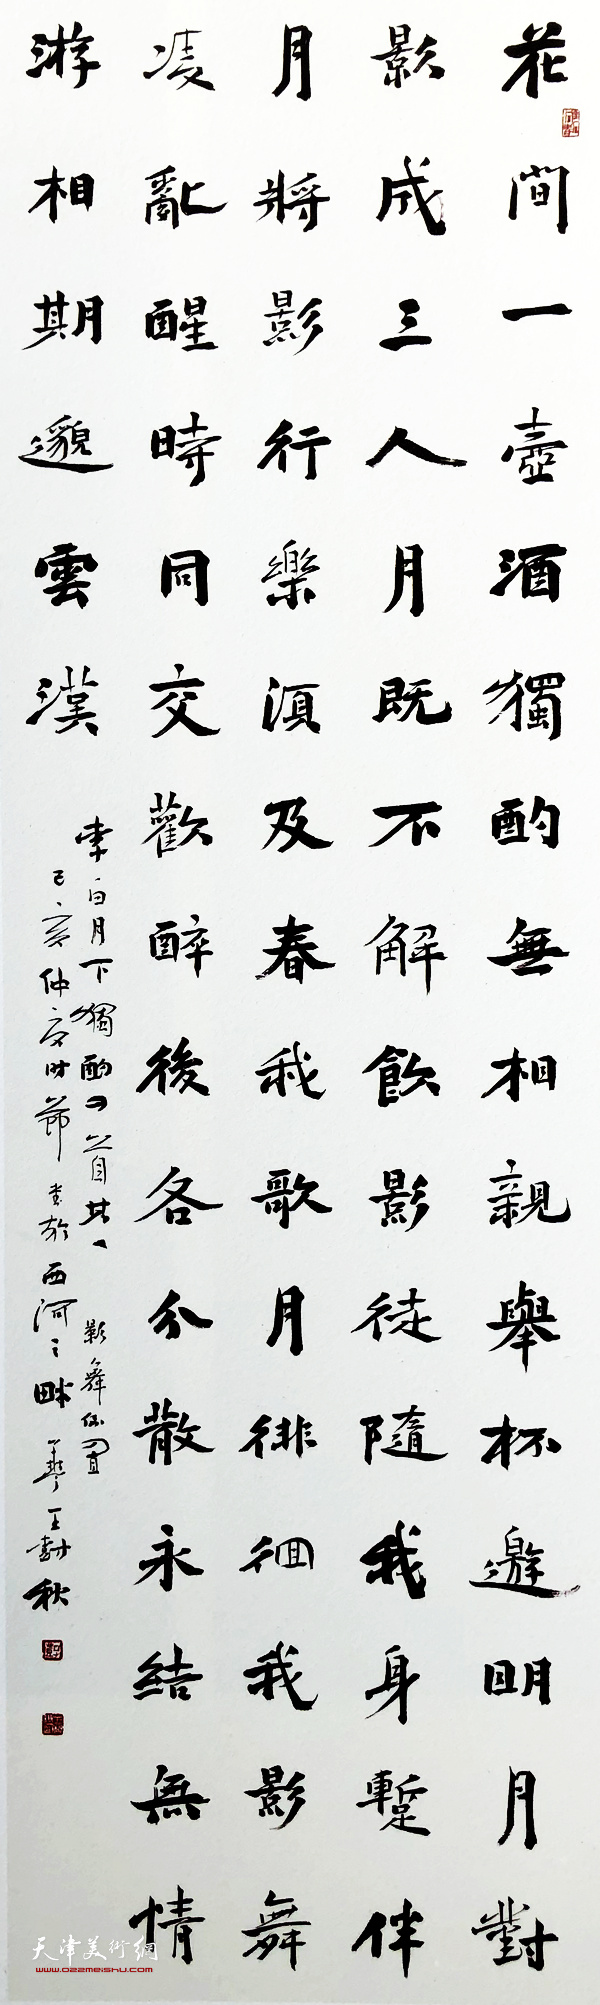 花間一壺酒獨酌無相親舉杯邀明月對
影成三人月既不解飲影徒隨我身蹔伴
月將影行樂須及春我歌月徘徊我影舞
凌亂醒時同交歡醉後各分散永結無情
游相期邈雲漢
李白月下獨酌四首其一 影舞
己亥仲夏時節書於西河之畔 王 秋
天津美術網
www.022meishu.com